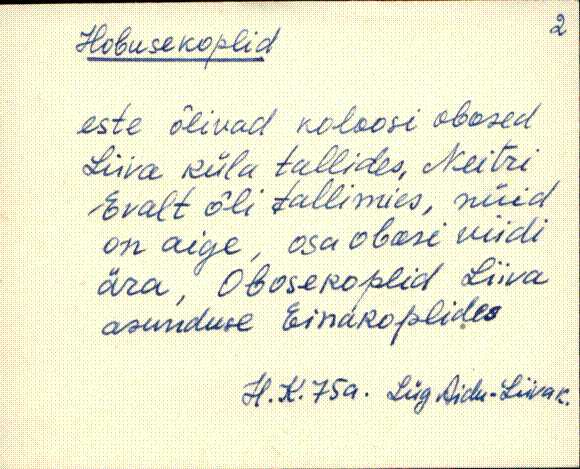 2
Hobusekoplid
este õlivad koloosi obosed
Liiva küla tallides, Neitri
Evalt õli tallimies, nüid
on aige, osa obosi viidi
ära, Obosekoplid Liiva
asunduse Einakoplides
H.K. 75a. Lüg Aidu-Liiva k.